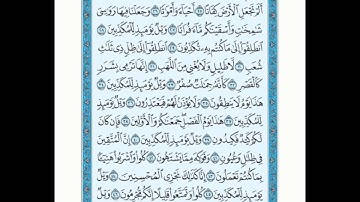 أَلَمْ نَجْعَلِ ٱلْأَرْضَ كِفَاتًا ٢٥ أَحْيَآءً وَأَمْوَٰتًا ٢٦ وَجَعَلْنَا فِيهَا رَوَٰسِيَ
شَٰمِخَٰتٍ وَأَسْقَيْنَٰكُم مَّآءً فُرَاتًا ٢٧ وَيْلٌ يَوْمَئِذٍ لِّلْمُكَذِّبِينَ ٢٨
ٱنطَلِقُوٓا۟ إِلَىٰ مَا كُنتُم بِهِۦ تُكَذِّبُونَ ٢٩ ٱنطَلِقُوٓا۟ إِلَىٰ ظِلٍّ ذِي ثَلَٰثِ
شُعَبٍ ٣٠ لَّا ظَلِيلٍ وَلَا يُغْنِي مِنَ ٱللَّهَبِ ٣١ إِنَّهَا تَرْمِي بِشَرَرٍ
كَٱلْقَصْرِ ٣٢ كَأَنَّهُۥ جِمَٰلَتٌ صُفْرٌ ٣٣ وَيْلٌ يَوْمَئِذٍ لِّلْمُكَذِّبِينَ ٣٤
هَٰذَا يَوْمُ لَا يَنطِقُونَ ٣٥ وَلَا يُؤْذَنُ لَهُمْ فَيَعْتَذِرُونَ ٣٦ وَيْلٌ يَوْمَئِذٍ
لِّلْمُكَذِّبِينَ ٣٧ هَٰذَا يَوْمُ ٱلْفَصْلِ جَمَعْنَٰكُمْ وَٱلْأَوَّلِينَ ٣٨ فَإِن كَانَ
لَكُمْ كَيْدٌ فَكِيدُونِ ٣٩ وَيْلٌ يَوْمَئِذٍ لِّلْمُكَذِّبِينَ ٤٠ إِنَّ ٱلْمُتَّقِينَ
فِي ظِلَٰلٍ وَعُيُونٍ ٤١ وَفَوَٰكِهَ مِمَّا يَشْتَهُونَ ٤٢ كُلُوا۟ وَٱشْرَبُوا۟ هَنِيٓـًٔا
بِمَا كُنتُمْ تَعْمَلُونَ ٤٣ إِنَّا كَذَٰلِكَ نَجْزِي ٱلْمُحْسِنِينَ ٤٤ وَيْلٌ
يَوْمَئِذٍ لِّلْمُكَذِّبِينَ ٤٥ كُلُوا۟ وَتَمَتَّعُوا۟ قَلِيلًا إِنَّكُم مُّجْرِمُونَ ٤٦ وَيْلٌ